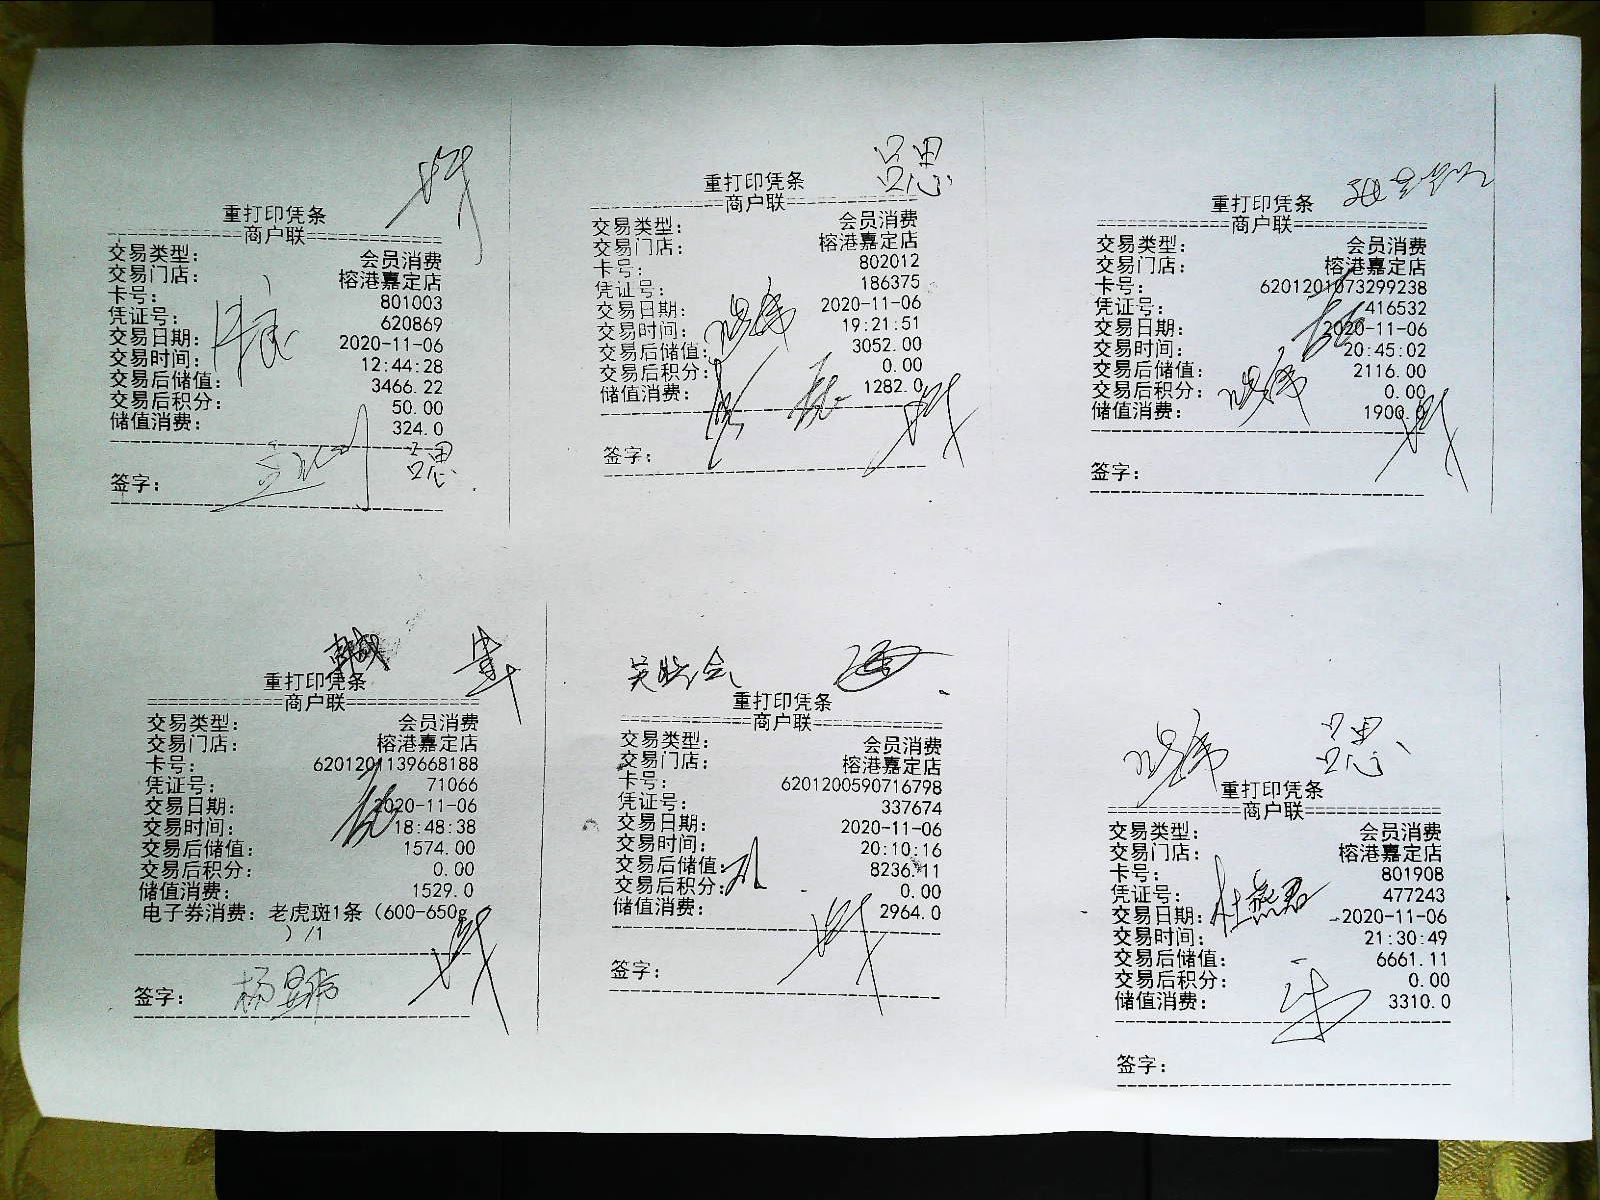 重打印凭条
==============商户联==============
交易类型： 会员消费
交易门店： 榕港嘉定店
卡号： 801003
凭证号： 620869
交易日期： 2020-11-06
交易时间： 12:44:28
交易后储值： 3466.22
交易后积分： 50.00
储值消费： 324.0
签字：
重打印凭条
==============商户联==============
交易类型： 会员消费
交易门店： 榕港嘉定店
卡号： 802012
凭证号： 186375
交易日期： 2020-11-06
交易时间： 19:21:51
交易后储值： 3052.00
交易后积分： 0.00
储值消费： 1282.0
签字：
重打印凭条
==============商户联==============
交易类型： 会员消费
交易门店： 榕港嘉定店
卡号： 6201201073299238
凭证号： 416532
交易日期： 2020-11-06
交易时间： 20:45:02
交易后储值： 2116.00
交易后积分： 0.00
储值消费： 1900.0
签字：
重打印凭条
==============商户联==============
交易类型： 会员消费
交易门店： 榕港嘉定店
卡号： 6201201139668188
凭证号： 71066
交易日期： 2020-11-06
交易时间： 18:48:38
交易后储值： 1574.00
交易后积分： 0.00
储值消费： 1529.0
电子券消费：老虎斑1条（600-650g
）/1
签字：
重打印凭条
==============商户联==============
交易类型： 会员消费
交易门店： 榕港嘉定店
卡号： 6201200590716798
凭证号： 337674
交易日期： 2020-11-06
交易时间： 20:10:16
交易后储值： 8236.11
交易后积分： 0.00
储值消费： 2964.0
签字：
重打印凭条
==============商户联==============
交易类型： 会员消费
交易门店： 榕港嘉定店
卡号： 801908
凭证号： 477243
杜燕君
交易日期： 2020-11-06
交易时间： 21:30:49
交易后储值： 6661.11
交易后积分： 0.00
储值消费： 3310.0
签字：